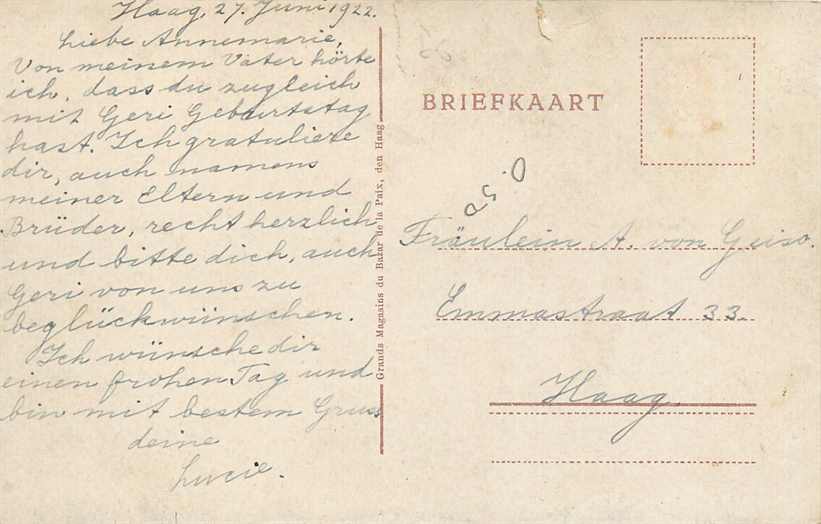 Haag, 27. Juni 1922.
Liebe Annemarie,
Von meinem Vater hörte
ich, dass du zugleich
mit Geri Geburtstag
hast. Ich gratuliere
dir, auch namens
meiner Eltern und
Brüder, recht herzlich
und bitte dich, auch
Geri von uns zu
beglückwünschen.
Ich wünsche dir
einen frohen Tag und
bin mit bestem Gruss
deine
Lucie.
Grands Magasins du Bazar de la Paix, den Haag
BRIEFKAART
0.50
Fräulein A. von Geiso.
Emmastraat 33.
Haag